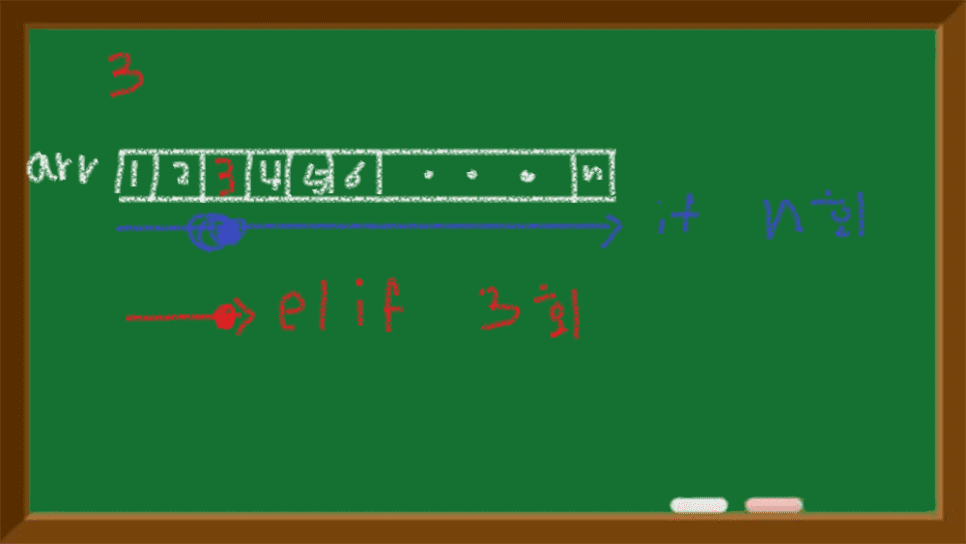 3
arr 1 2 3 4 5 6 . . . n
if n회
elif 3회